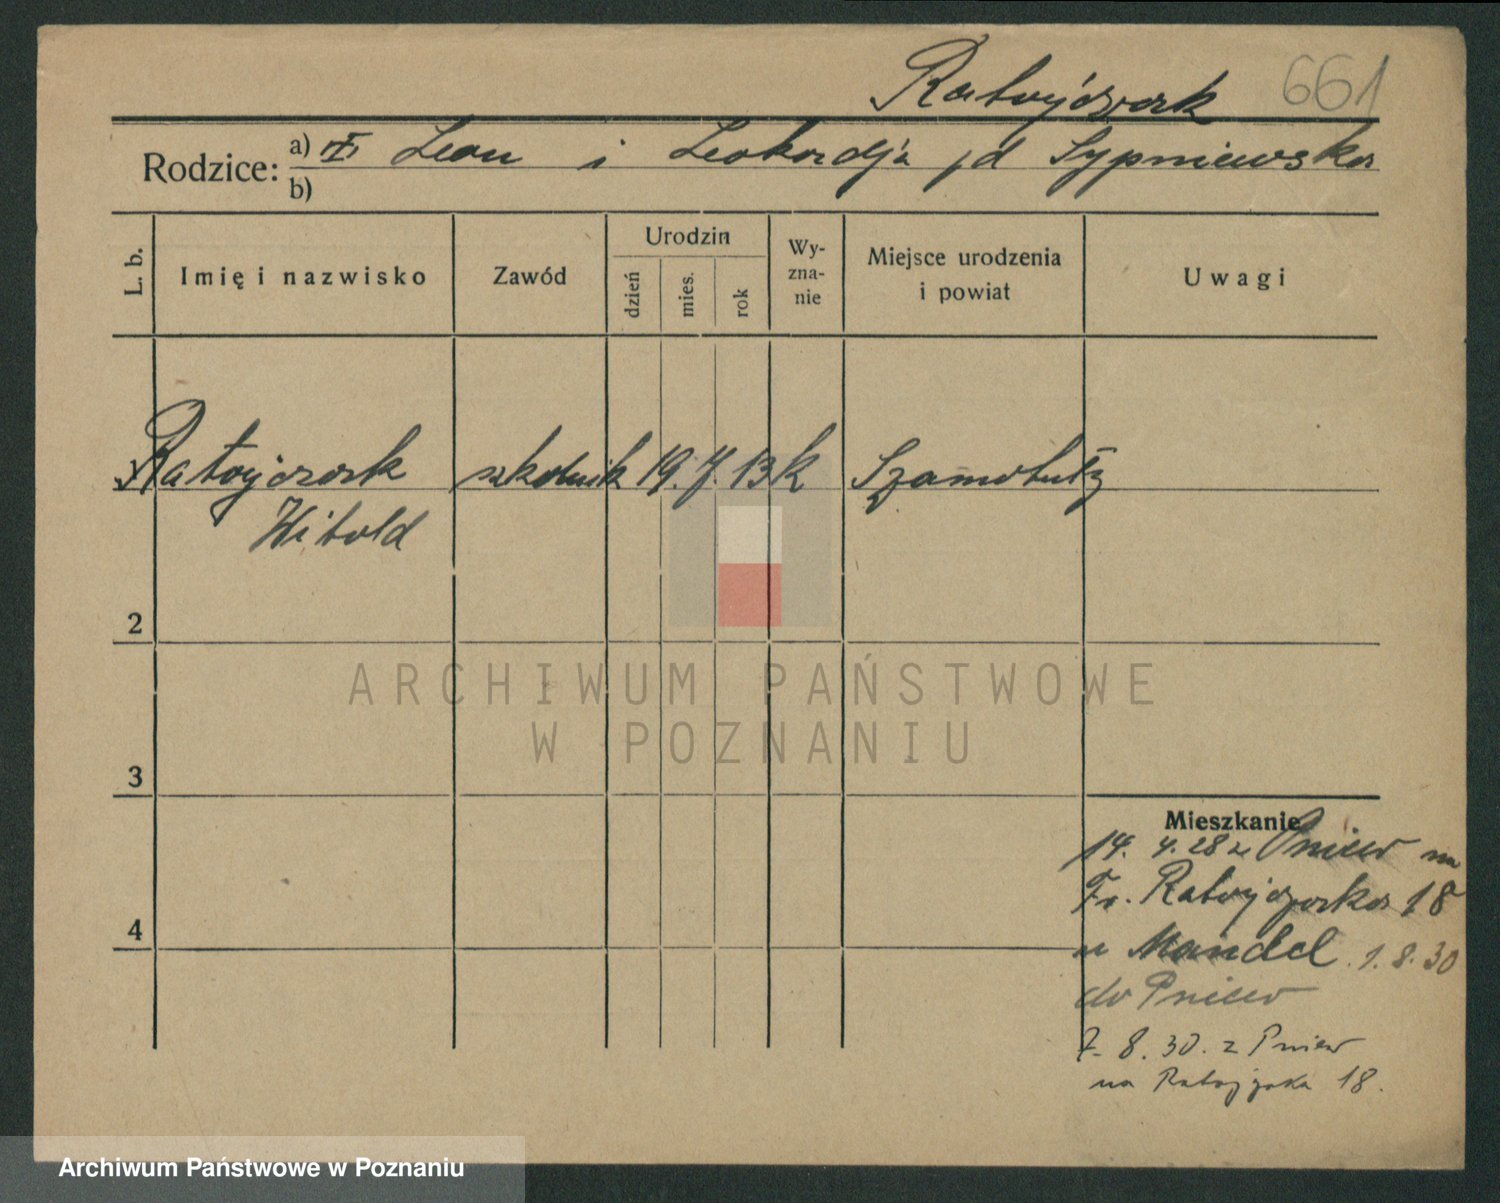 Ratajczak 661
Rodzice: a) Leon i Leokadja /d Sypniewska
b)
L. b. Imię i nazwisko Zawód Urodzin dzień mies. rok Wy-zna-nie Miejsce urodzenia i powiat Uwagi
Ratajczak szkolnik 19. 7. 13 k Szamotuły
Witold
2
ARCHIWUM PAŃSTWOWE
W POZNANIU
3
Mieszkanie
14. 4. 28 z Pniew na
Fr. Ratajczaka 18
u Mandel. 1. 8. 30
4
do Pniew
7. 8. 30. z Pniew
na Ratajczaka 18.
Archiwum Państwowe w Poznaniu